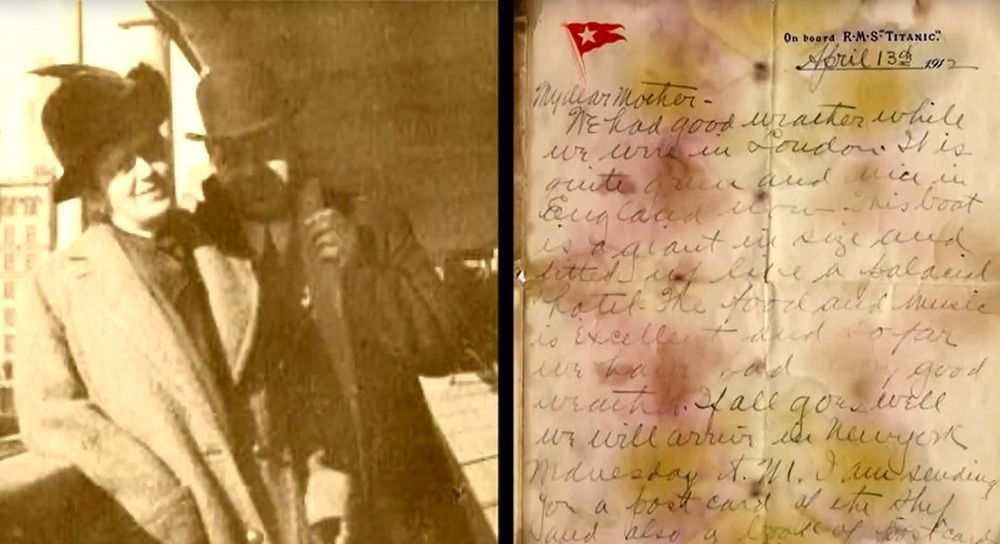 On board R·M·S "TITANIC."
April 13th 1912
My dear Mother -
We had good weather while
we were in London. It is
quite green and nice in
England now. This boat
is a giant in size and
fitted up like a palacial
hotel. The food and music
is excellent and so far
we have had good
weather. If all goes well
we will arrive in New york
Wednesday A.M. I am sending
you a post card of the ship
and also a book of post cards